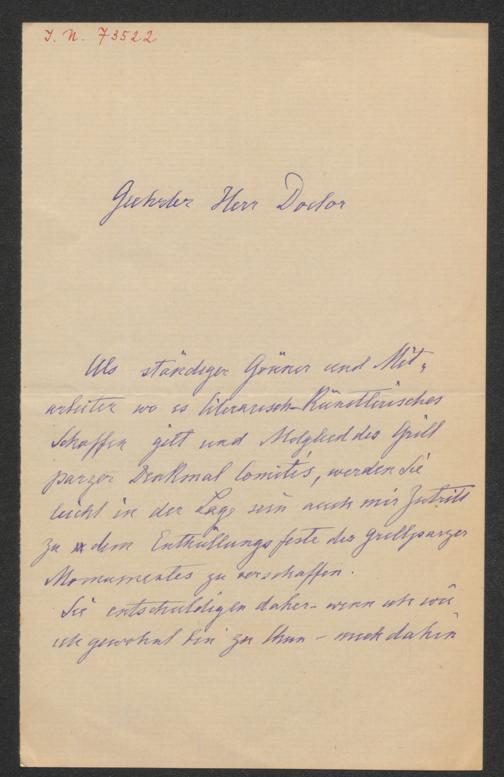 I. N. 73522
Geehrter Herr Doctor
Als ständiger Gönner und Mit-
arbeiter wo es literarisch-Künstlerisches
Schaffen gilt und Mitglied des Grill
parzer Denkmal Comités, werden Sie
leicht in der Lage sein auch mir Zutritt
zu dem Enthüllungsfeste des Grillparzer
Monumentes zu verschaffen.
Sie entschuldigen daher - wenn ich wie
ich gewohnt bin zu thun - mich dahin